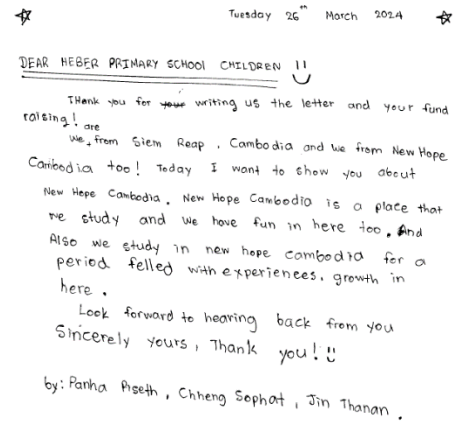 Tuesday 26th March 2024
DEAR HEBER PRIMARY SCHOOL CHILDREN
THank you for your writing us the letter and your fund
raising!
We are from Siem Reap, Cambodia and we from New Hope
Cambodia too! Today I want to show you about
New Hope Cambodia. New Hope Cambodia is a place that
we study and we have fun in here too. And
Also we study in new hope cambodia for a
period felled with experiences, growth in
here.
Look forward to hearing back from you
Sincerely yours, Thank you!
by: Panha Piseth, Chheng Sophat, Jin Thanan.